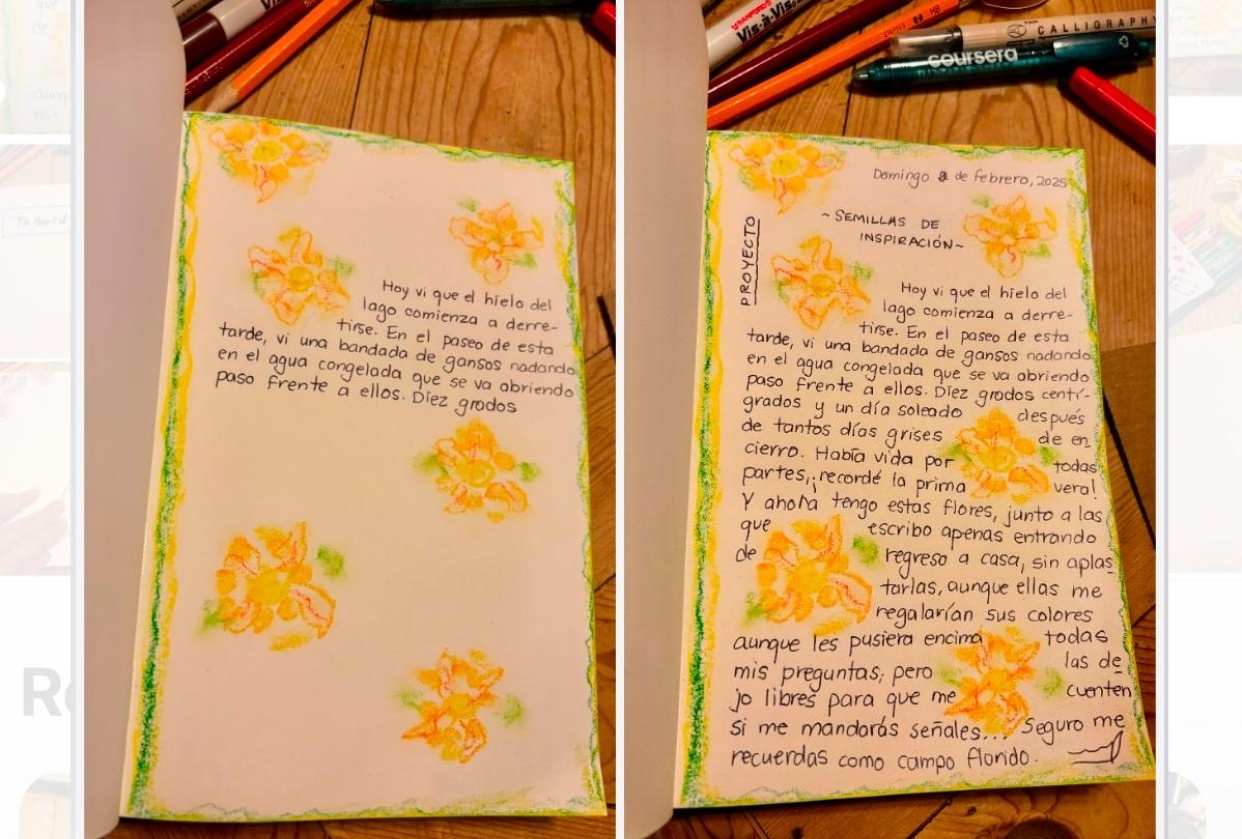 Hoy vi que el hielo del
lago comienza a derre-
tirse. En el paseo de esta
tarde, vi una bandada de gansos nadando
en el agua congelada que se va abriendo
paso frente a ellos. Diez grados
Vis-à-Vis
coursera
CALLIGRAPHY
HB
Domingo 2 de febrero, 2025
PROYECTO
~SEMILLAS DE
INSPIRACIÓN~
Hoy vi que el hielo del
lago comienza a derre-
tirse. En el paseo de esta
tarde, vi una bandada de gansos nadando
en el agua congelada que se va abriendo
paso frente a ellos. Diez grados centí-
grados y un día soleado después
de tantos días grises de en
cierro. Había vida por todas
partes, ¡recordé la prima vera!
Y ahora tengo estas flores, junto a las
que escribo apenas entrando
de regreso a casa, sin aplas
tarlas, aunque ellas me
regalarían sus colores
aunque les pusiera encima todas
mis preguntas; pero las de
jo libres para que me cuenten
si me mandarás señales... Seguro me
recuerdas como campo florido.